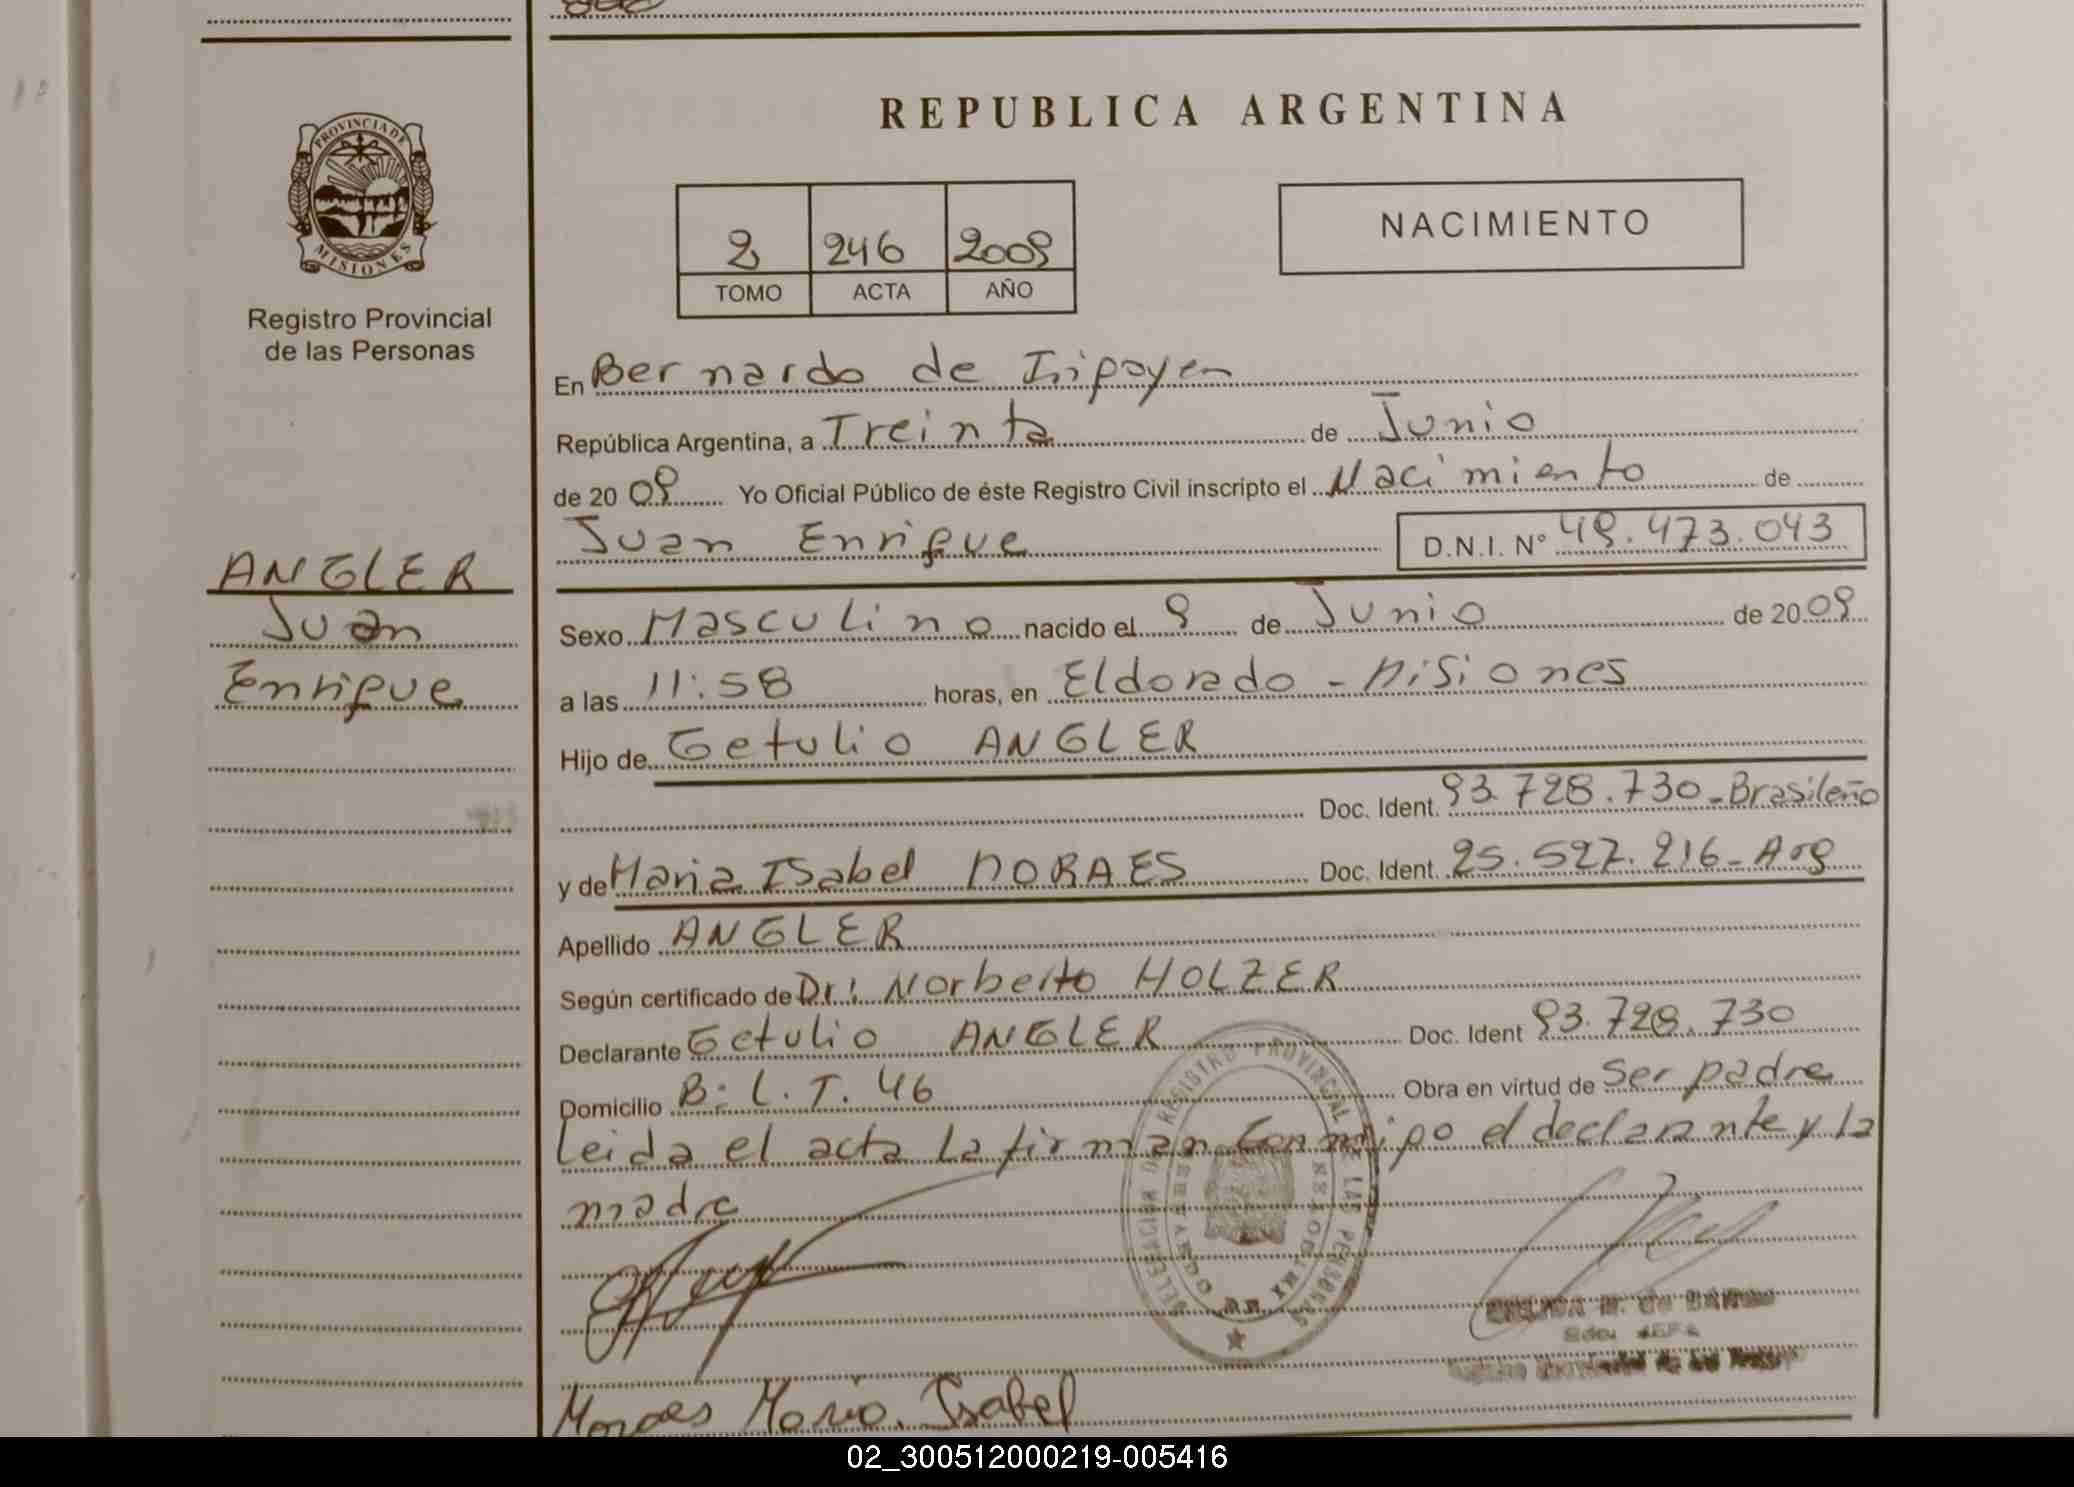 REPUBLICA ARGENTINA
PROVINCIA DE
MISIONES
Registro Provincial
de las Personas
2 246 2009
TOMO ACTA AÑO
NACIMIENTO
En Bernardo de Iripoyen
República Argentina, a Treinta de Junio
de 2009 Yo Oficial Público de éste Registro Civil inscripto el Nacimiento de
Juan Enrique D.N.I. Nº 49.473.043
ANGLER
Juan
Enrique
Sexo Masculino nacido el 9 de Junio de 2009
a las 11:58 horas, en Eldorado - Misiones
Hijo de Getulio ANGLER
Doc. Ident. 93.728.730 - Brasileño
y de Maria Isabel MORAES Doc. Ident. 25.527.216 - Arg
Apellido ANGLER
Según certificado de Dr: Norberto HOLZER
Declarante Getulio ANGLER Doc. Ident 93.728.730
Domicilio B: L. T. 46 Obra en virtud de Ser padre
Leida el acta La firman Conmigo el declarante y la
madre
Moraes Maria Isabel
02_300512000219-005416